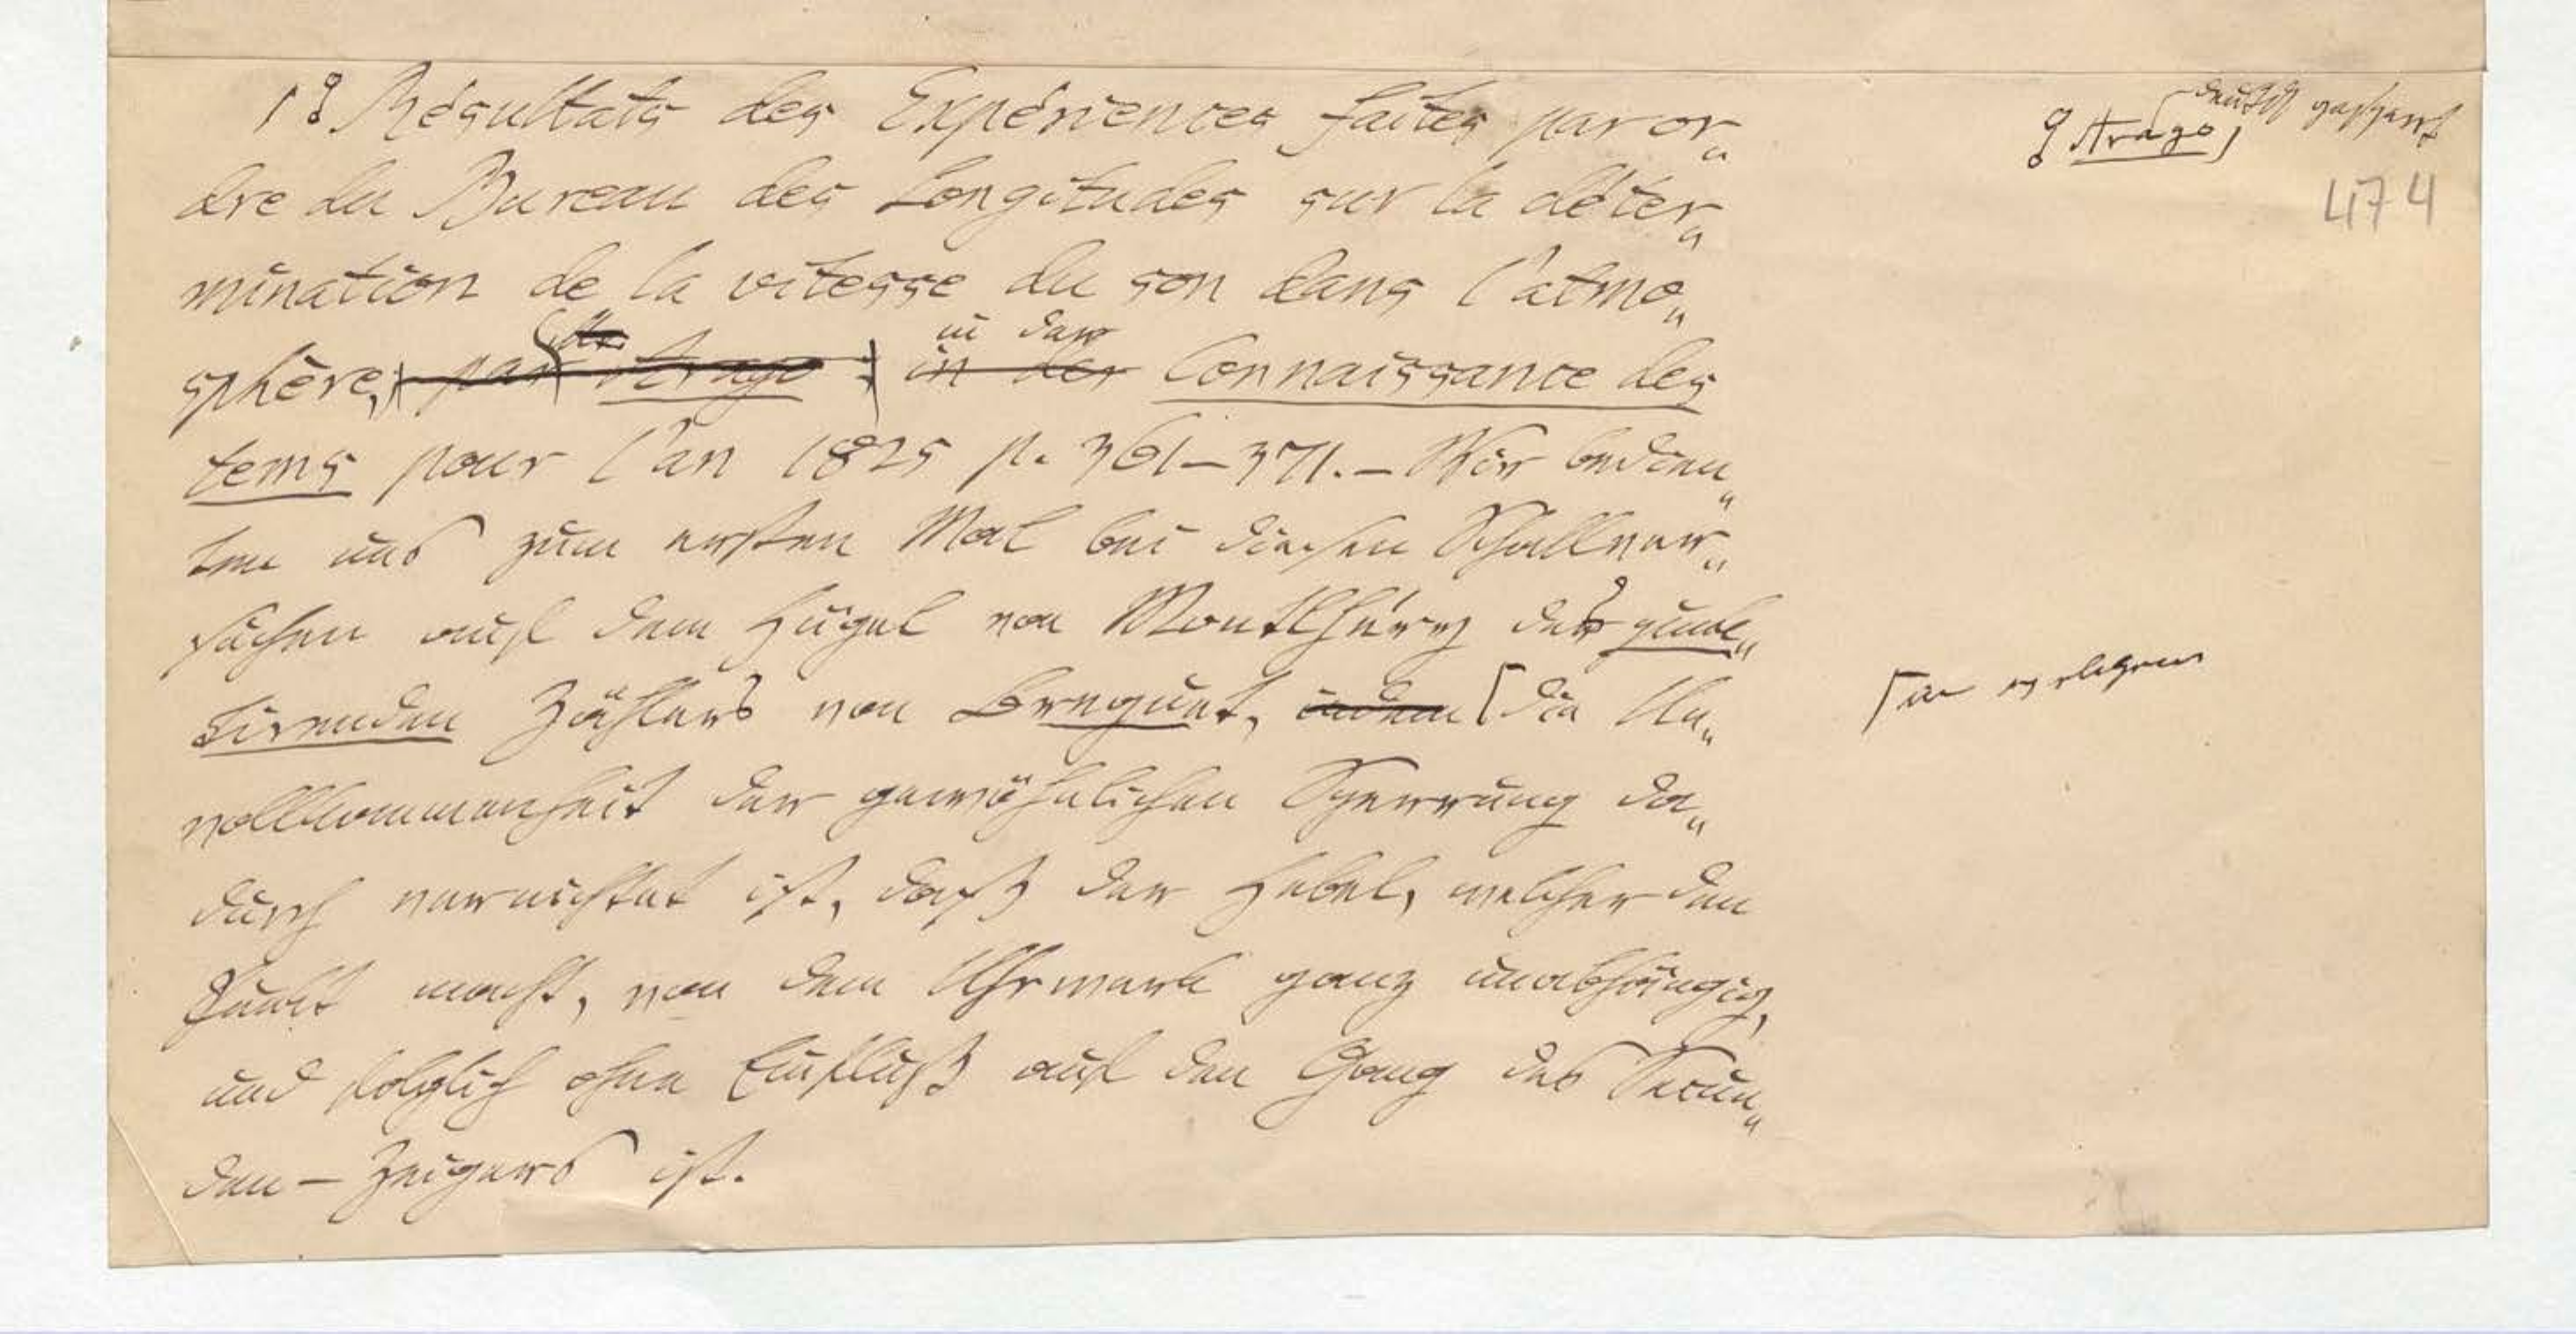 1 Résultats des Expériences faites par or„
dre du Bureau des Longitudes sur la déter„
mination de la vitesse du son dans l'atmo„
sphère, par Arago in der in der Connaissance des
tems pour l'an 1825 p. 361–371. – Wir bedien„
ten uns zum ersten Mal bei diesen Schallver„
suchen auf dem Hügel von Montlhéry des punk„
tirenden Zählers von Breguet, indem die Un„
vollkommenheit der gewöhnlichen Sperrung da„
durch vernichtet ist, daß der Hebel, welcher den
Punkt macht, von dem Uhrwerk ganz unabhängig,
und folglich ohne Einfluß auf den Gang des Secun„
den–Zeigers ist.
deutsch
Arago,
474